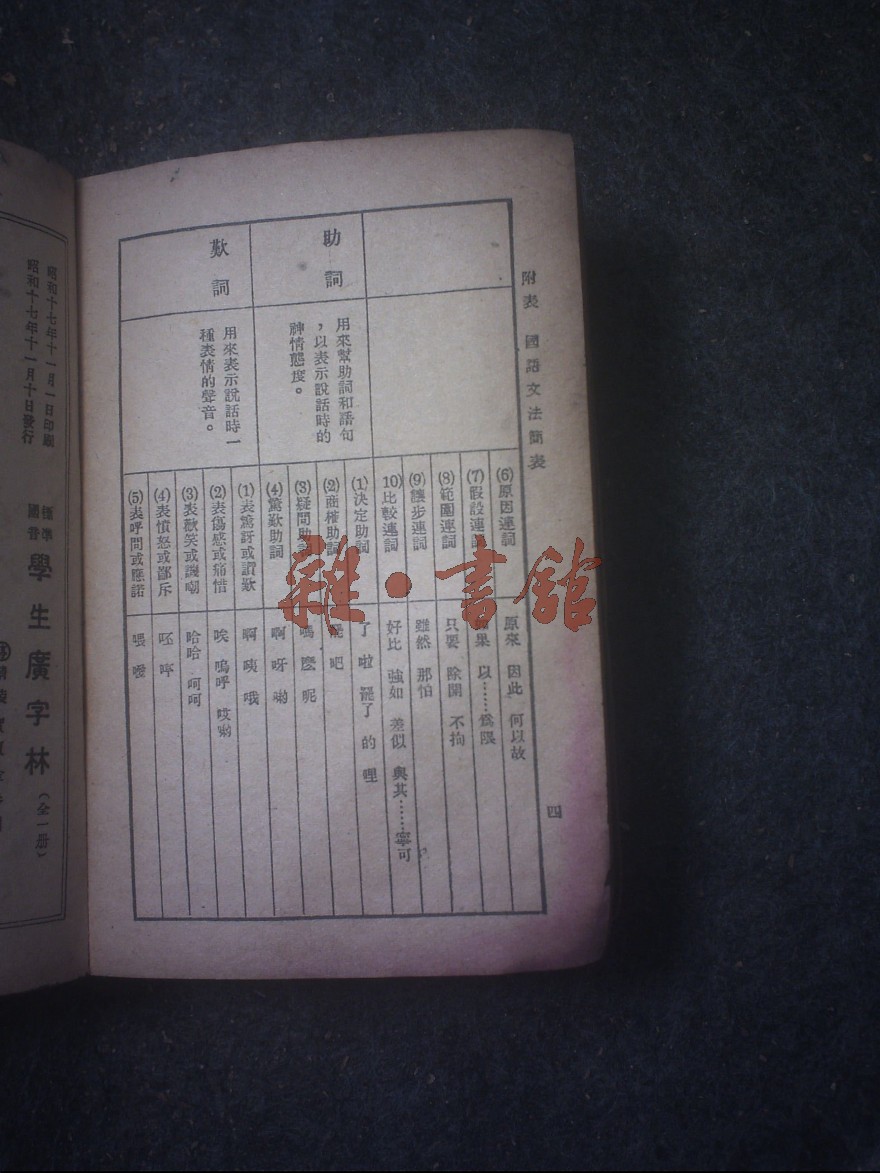 附表　國語文法簡表
四
(6)原因連詞　原來　因此　何以故
(7)假設連詞　果　以……爲限
(8)範圍連詞　只要　除開　不拘
(9)讓步連詞　雖然　那怕
(10)比較連詞　好比　強如　差似　與其……寧可
助詞
用來幫助詞和語句
，以表示說話時的
神情態度。
(1)決定助詞　了　啦　罷了　的　哩
(2)商榷助詞　罷　吧
(3)疑問助詞　嗎　麽　呢
(4)驚歎助詞　啊　呀　喲
歎詞
用來表示說話時一
種表情的聲音。
(1)表驚訝或讚歎　啊　咦　哦
(2)表傷感或痛惜　唉　嗚呼　哎喲
(3)表歡笑或譏嘲　哈哈　呵呵
(4)表憤怒或鄙斥　呸　哼
(5)表呼問或應諾　喂
昭和十七年十一月一日印刷
昭和十七年十一月十日發行
標準
國音
學生廣字林
（全一册）
雜·書館